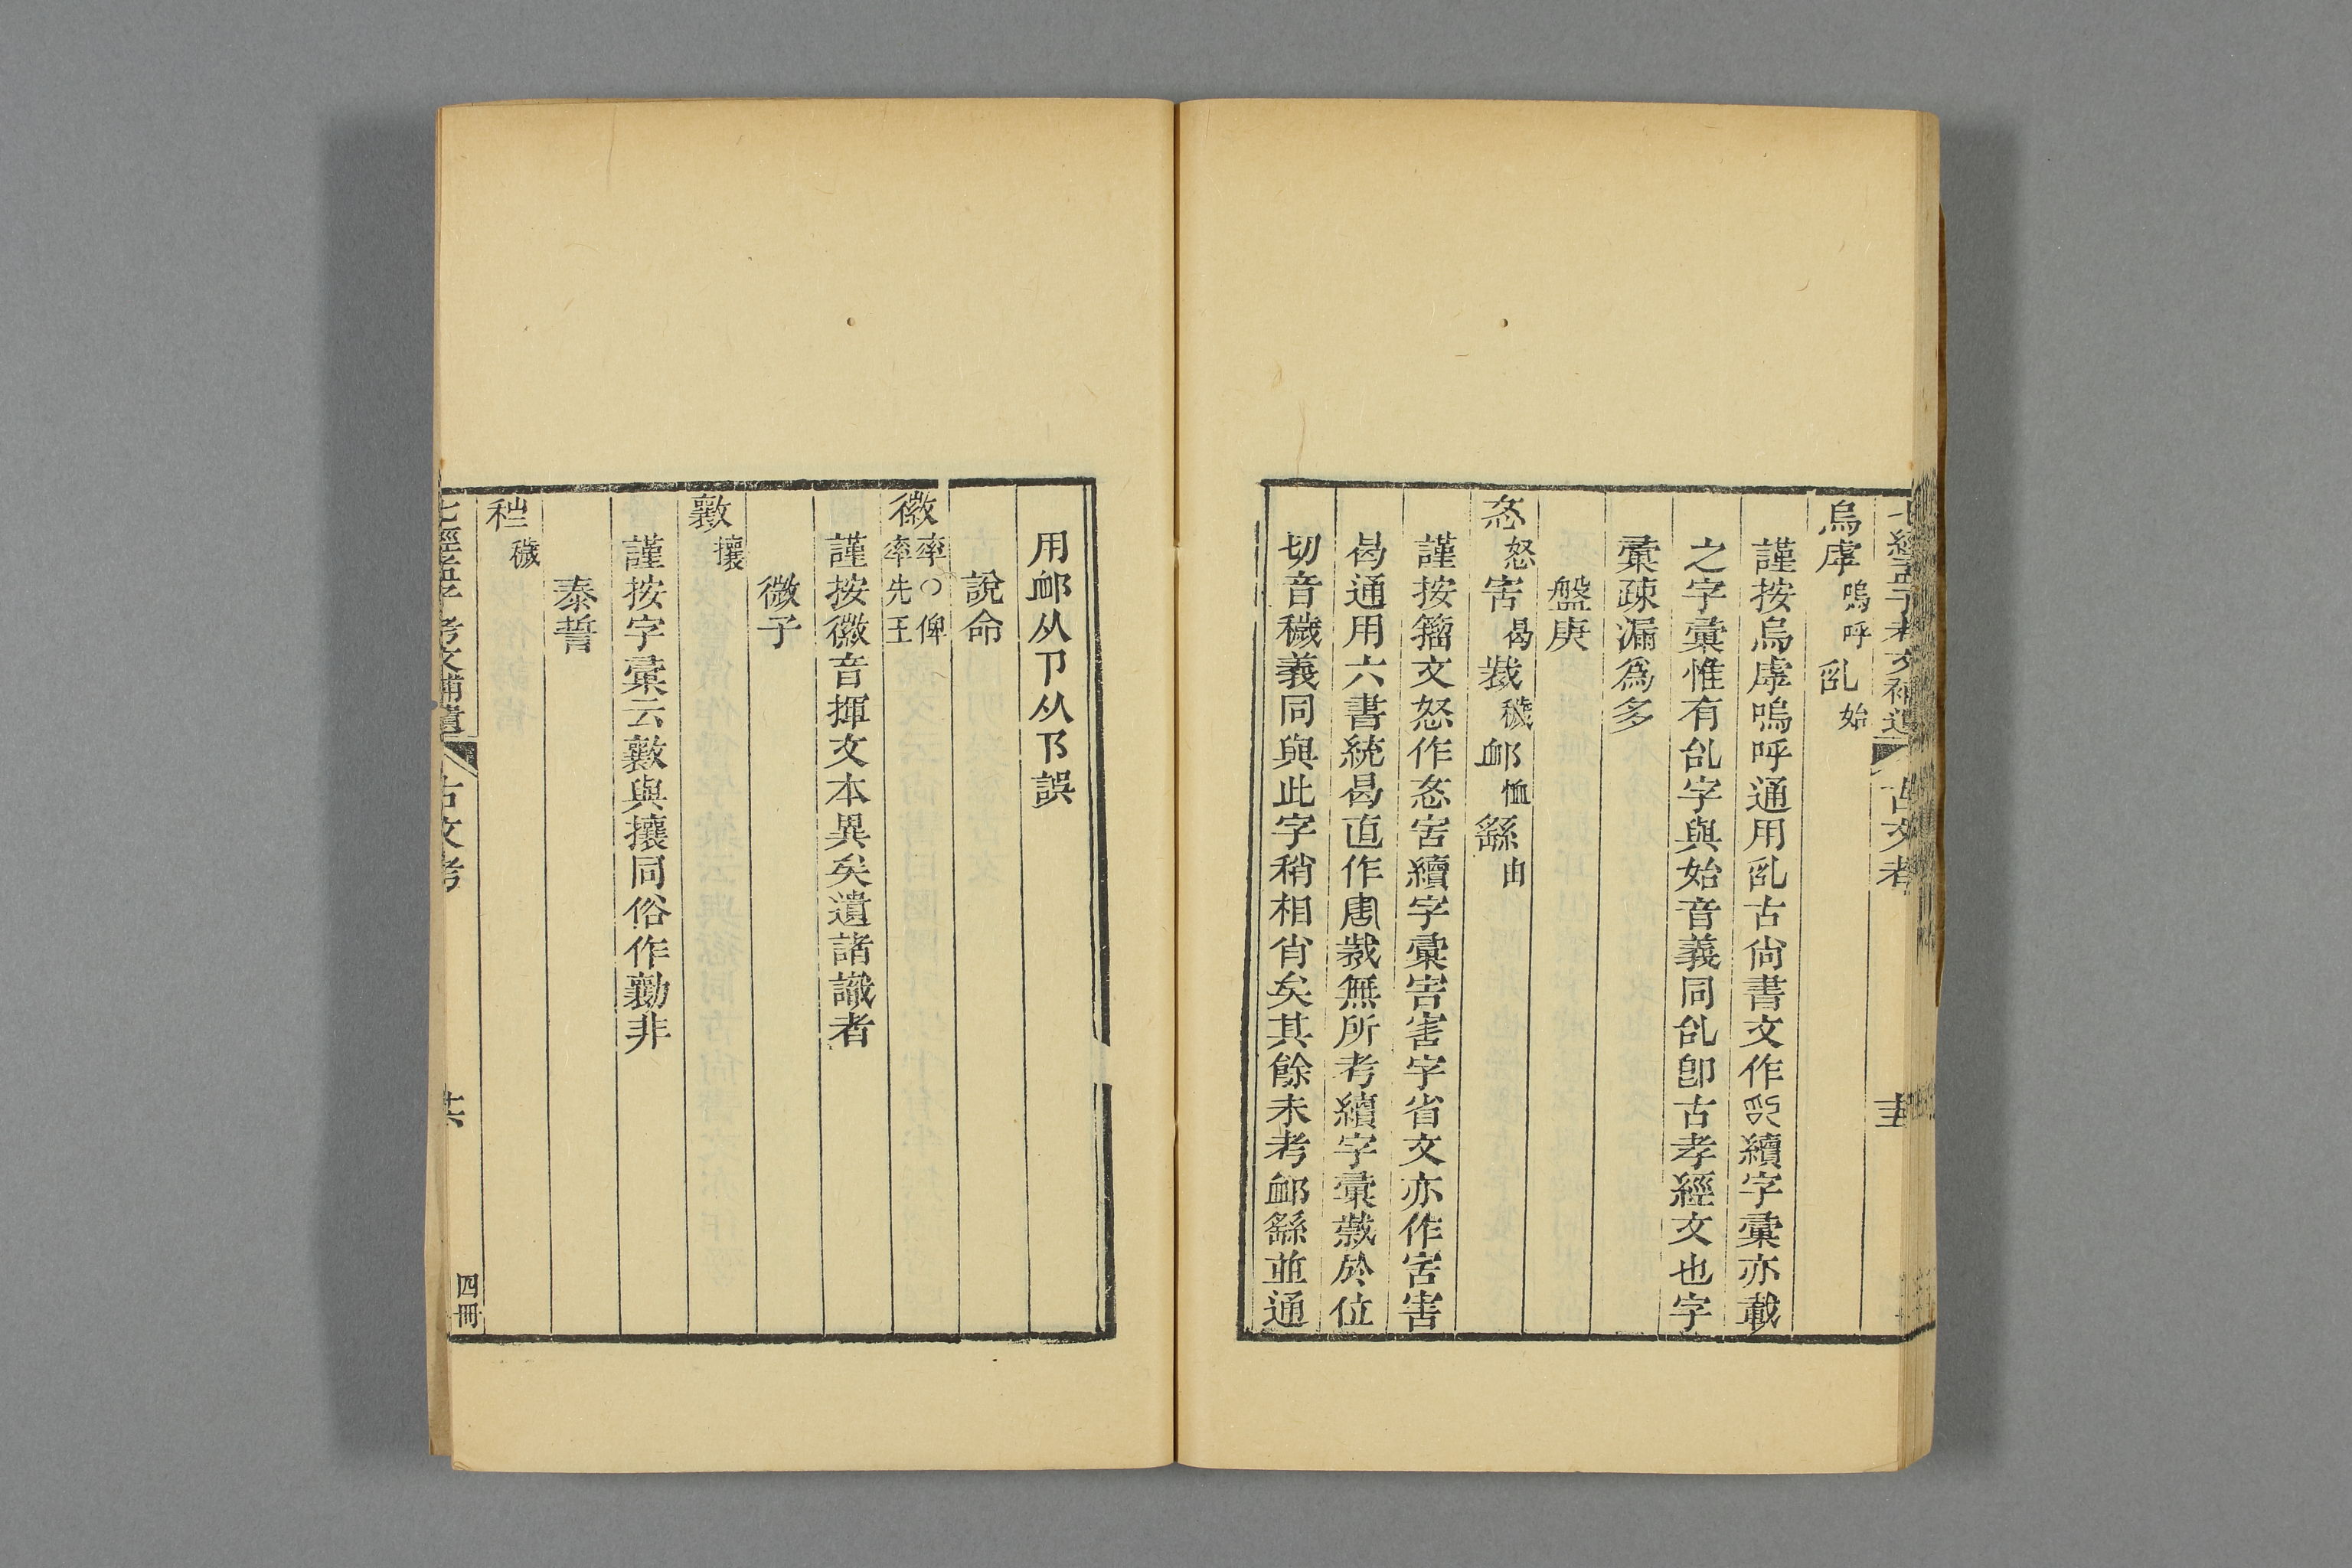 七經孟子考文補遺 古文考 十五
烏虖嗚呼乨始
謹按烏虖嗚呼通用乨古尙書文作續字彙亦載
之字彙惟有乨字與始音義同乨卽古孝經文也字
彙疎漏爲多
盤庚
怒害曷穢䘏恤繇由
謹按籀文怒作害續字彙害字省文亦作害
曷通用六書統曷直作無所考續字彙於位
切音穢義同與此字稍相肖矣其餘未考䘏繇並通
用䘏从卩从阝誤
說命
徽率〇俾
率先王
謹按徽音揮文本異矣遺諸識者
微子
攘
謹按字彙云與攘同俗作勷非
泰誓
穢
七經孟子考文補遺 古文考 十六 四冊